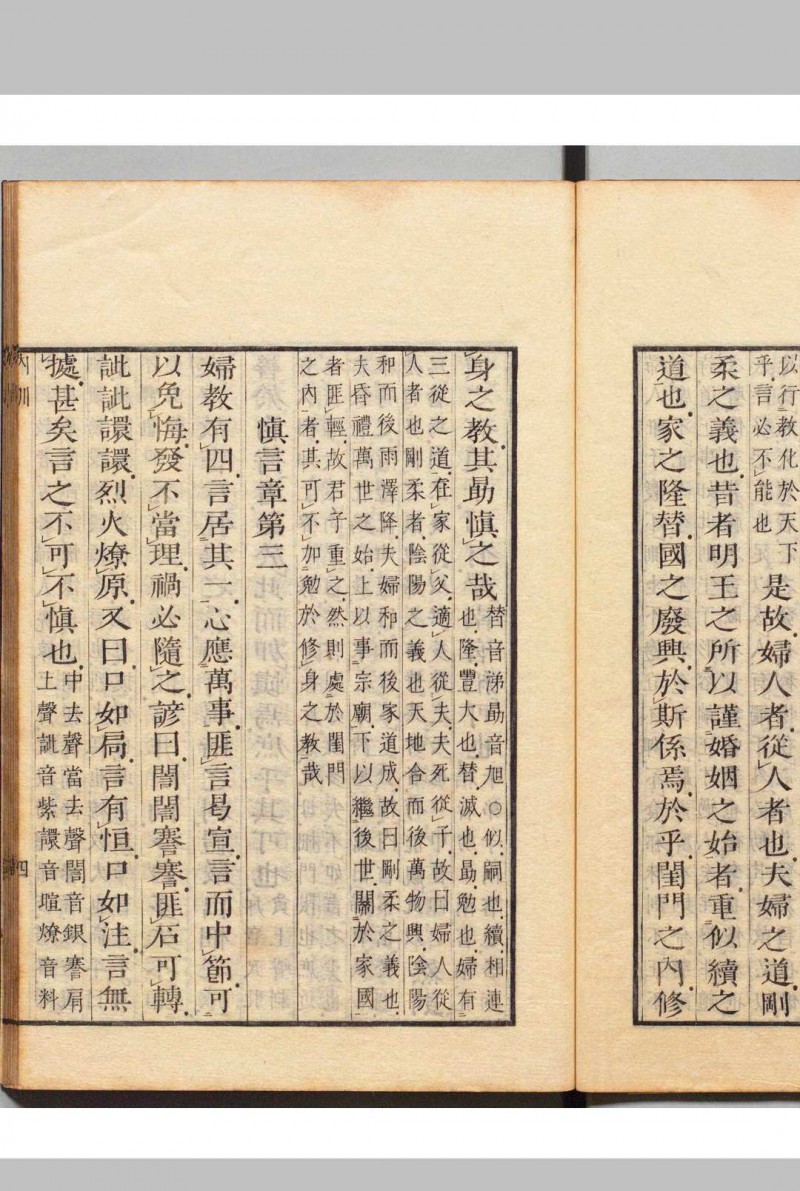 以行教化於天下
乎言必不能也
是故婦人者從人者也夫婦之道剛
柔之義也昔者明王之所以謹婚姻之始者重似續之
道也家之隆替國之廢興於斯係焉於乎閨門之內修
身之教其勖慎之哉
替音涕勖音旭○似嗣也續相連
也隆豐大也替滅也勖勉也婦有
三從之道在家從父適人從夫夫死從子故曰婦人從
人者也剛柔者陰陽之義也天地合而後萬物興陰陽
和而後雨澤降夫婦和而後家道成故曰剛柔之義也
夫昏禮萬世之始上以事宗廟下以繼後世關於家國
者匪輕故君子重之然則處於閨門
之內者其可不加勉於修身之教哉
慎言章第三
婦教有四言居其一心應萬事匪言曷宣言而中節可
以免悔發不當理禍必隨之諺曰誾誾謇謇匪石可轉
訿訿譞譞烈火燎原又曰口如扃言有恒口如注言無
據甚矣言之不可不慎也
中去聲當去聲誾音銀謇肩
上聲訿音紫譞音暄燎音料
內訓
四